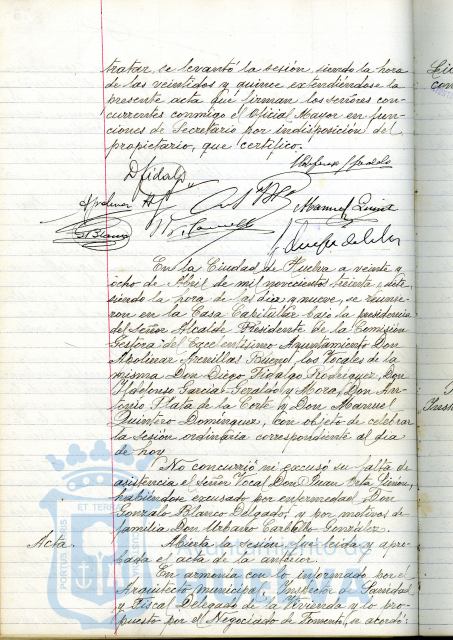 tratar, se levantó la sesión, siendo la hora
de las veintidos y quince extendiéndose la
presente acta que firman los señores con-
currentes conmigo el Oficial Mayor en fun-
ciones de Secretario por indisposición del
propietario, que certifico.
D Fidalgo
Manuel Quint
G Blanco
En la Ciudad de Huelva a veinte y
ocho de Abril de mil novecientos treinta y siete
siendo la hora de las diez y nueve, se reunie-
ron en la Casa Capitular bajo la presidencia
del Señor Alcalde Presidente de la Comisión
Gestora del Excelentísimo Ayuntamiento Don
Apolinar Arenillas Bueno, los Vocales de la
misma Don Diego Fidalgo Rodriguez, Don
Ildefonso Garcia-Geraldo y Mora, Don An-
tonio Plata de la Corte y Don Manuel
Quintero Dominguez, con objeto de celebrar
la sesión ordinaria correspondiente al dia
de hoy
No concurrió ni excusó su falta de
asistencia el Señor Vocal Don Juan Orta
habiéndose excusado por enfermedad, Don
Gonzalo Blanco Delgado, y por motivos de
familia Don Urbano Carballo González.
Acta. Abierta la sesión fue leida y apro-
bada el acta de la anterior.
En armonia con lo informado por el
Arquitecto municipal, Inspector de Sanidad
y Fiscal Delegado de la Vivienda y lo pro-
puesto por el Negociado de Fomento, se acordó:
Ayuntamiento de
HUELVA